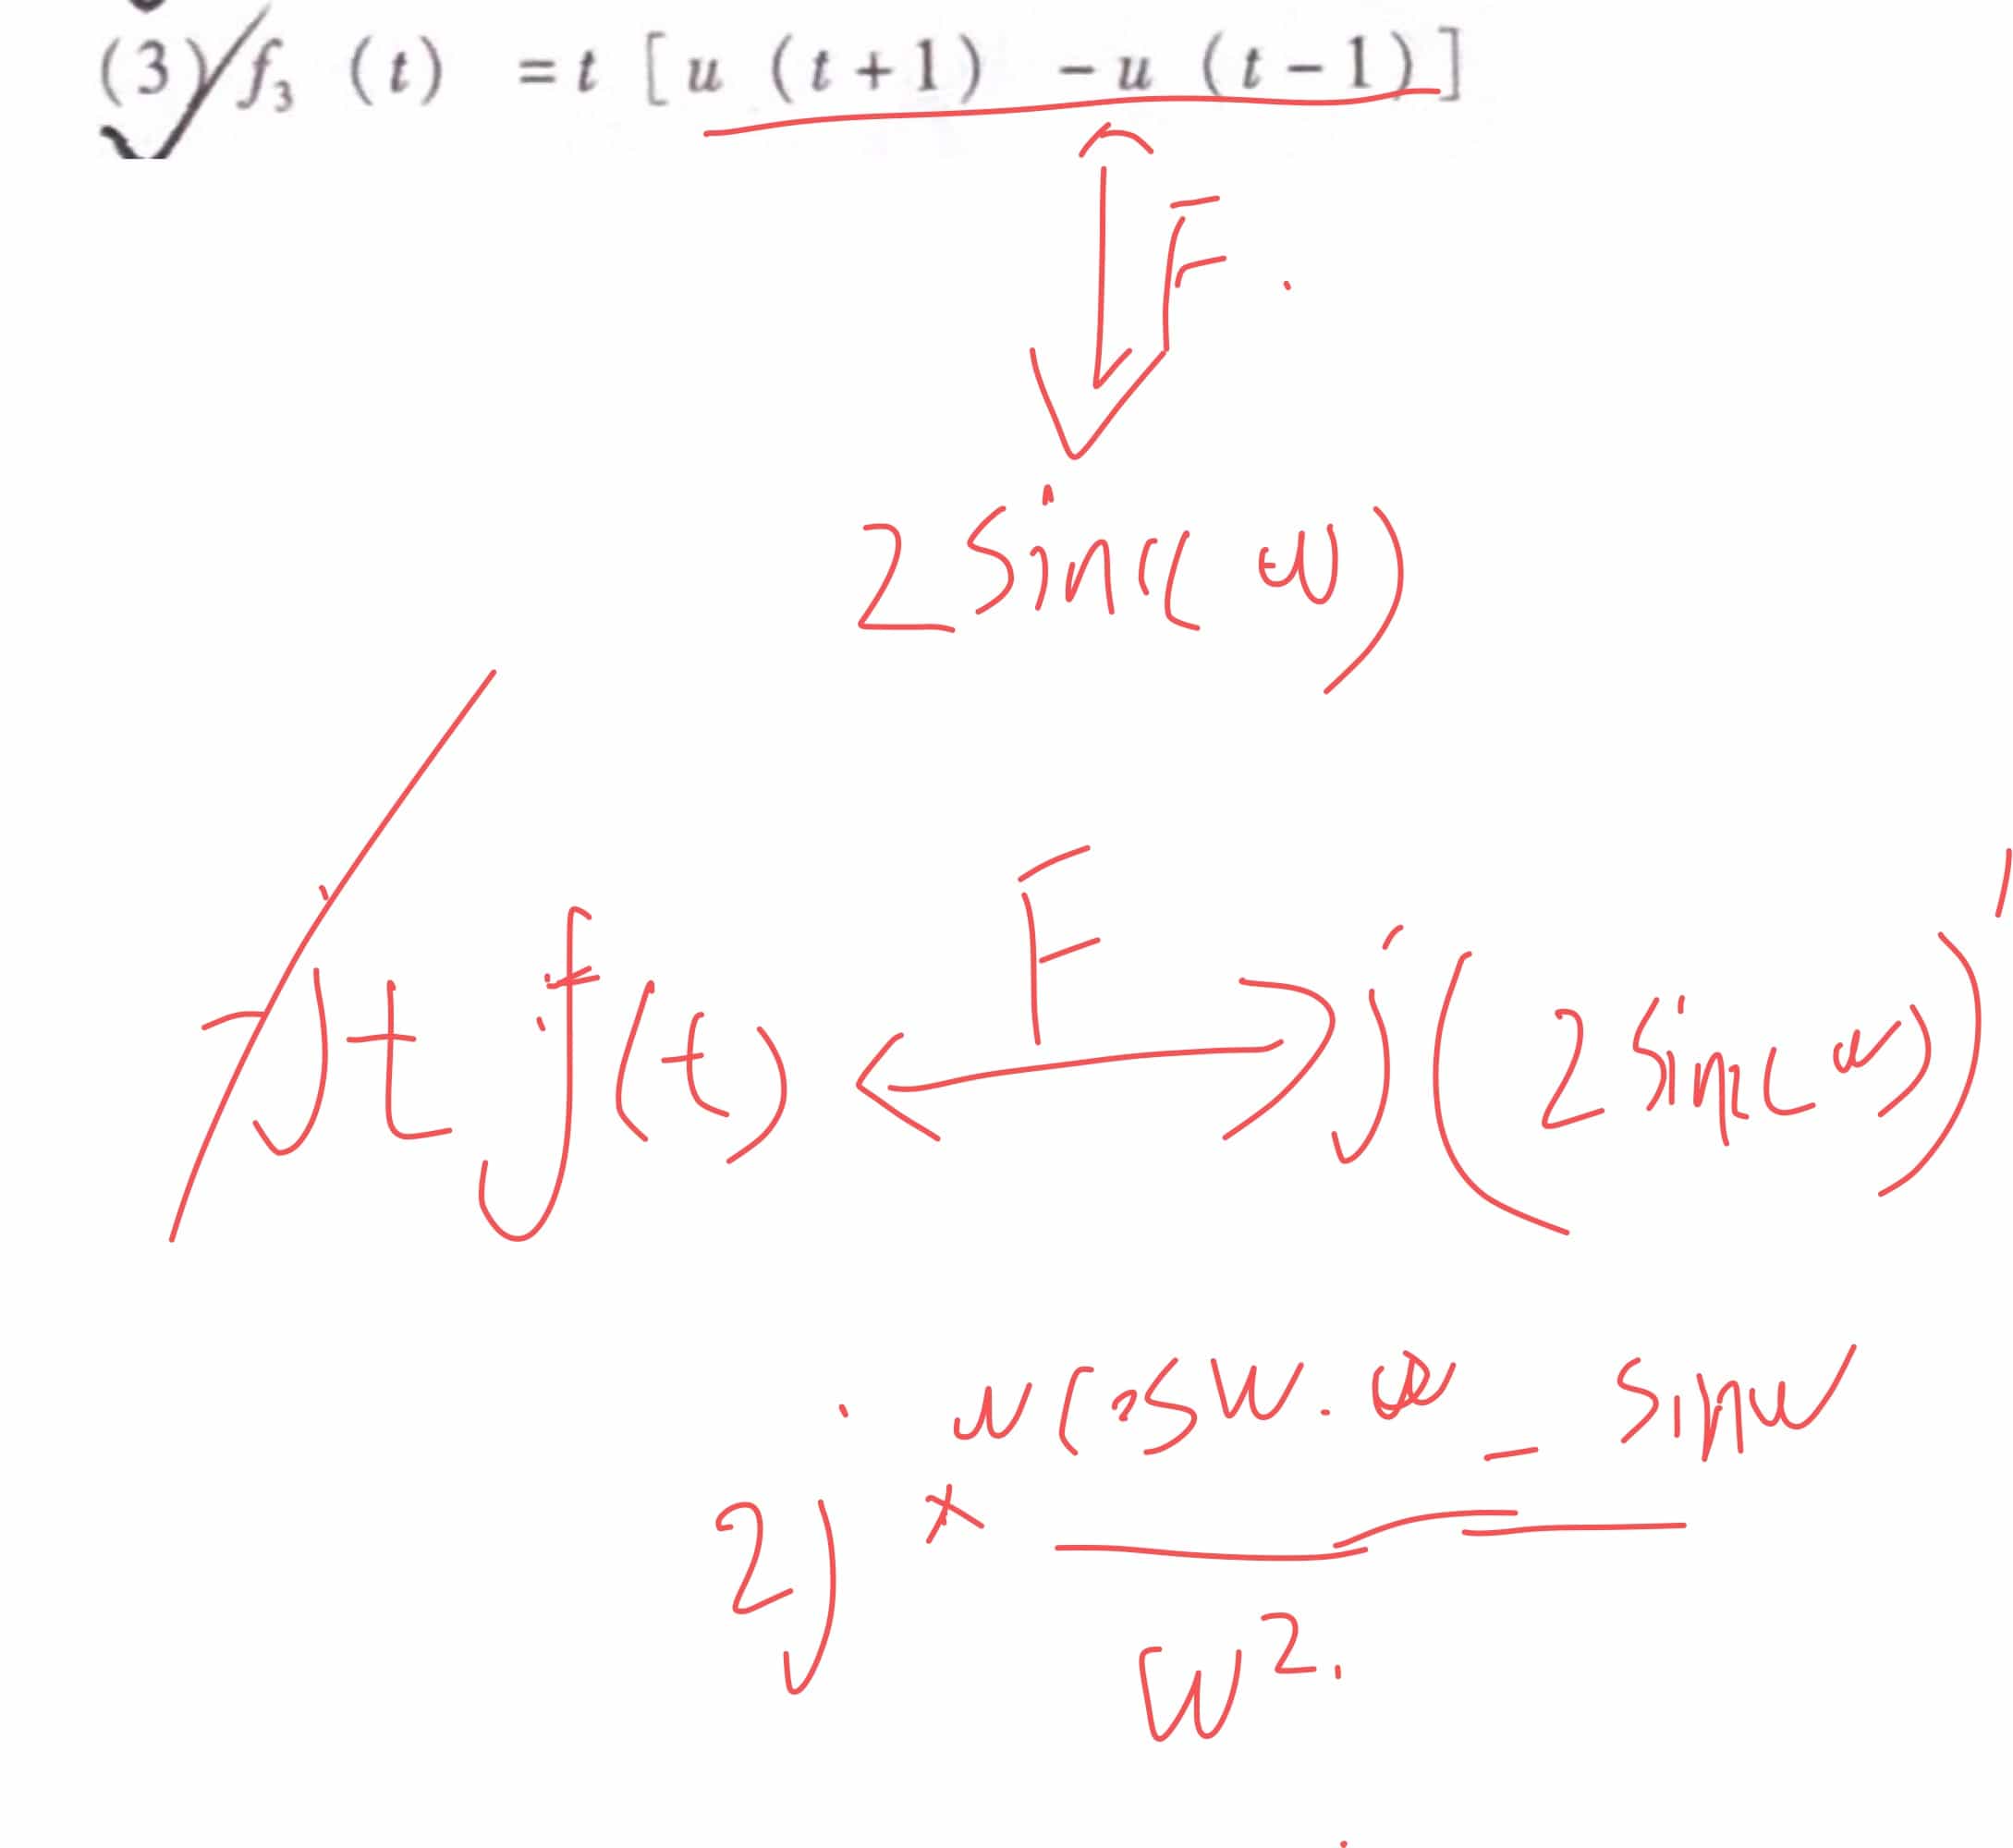 (3) f₃ (t) = t [u (t+1) - u (t-1)]
F
2 Sinc(ω)
t f(t) ⟷ j(2 Sinc ω)'
F
w cos w . - sin w
2j ×
w² .